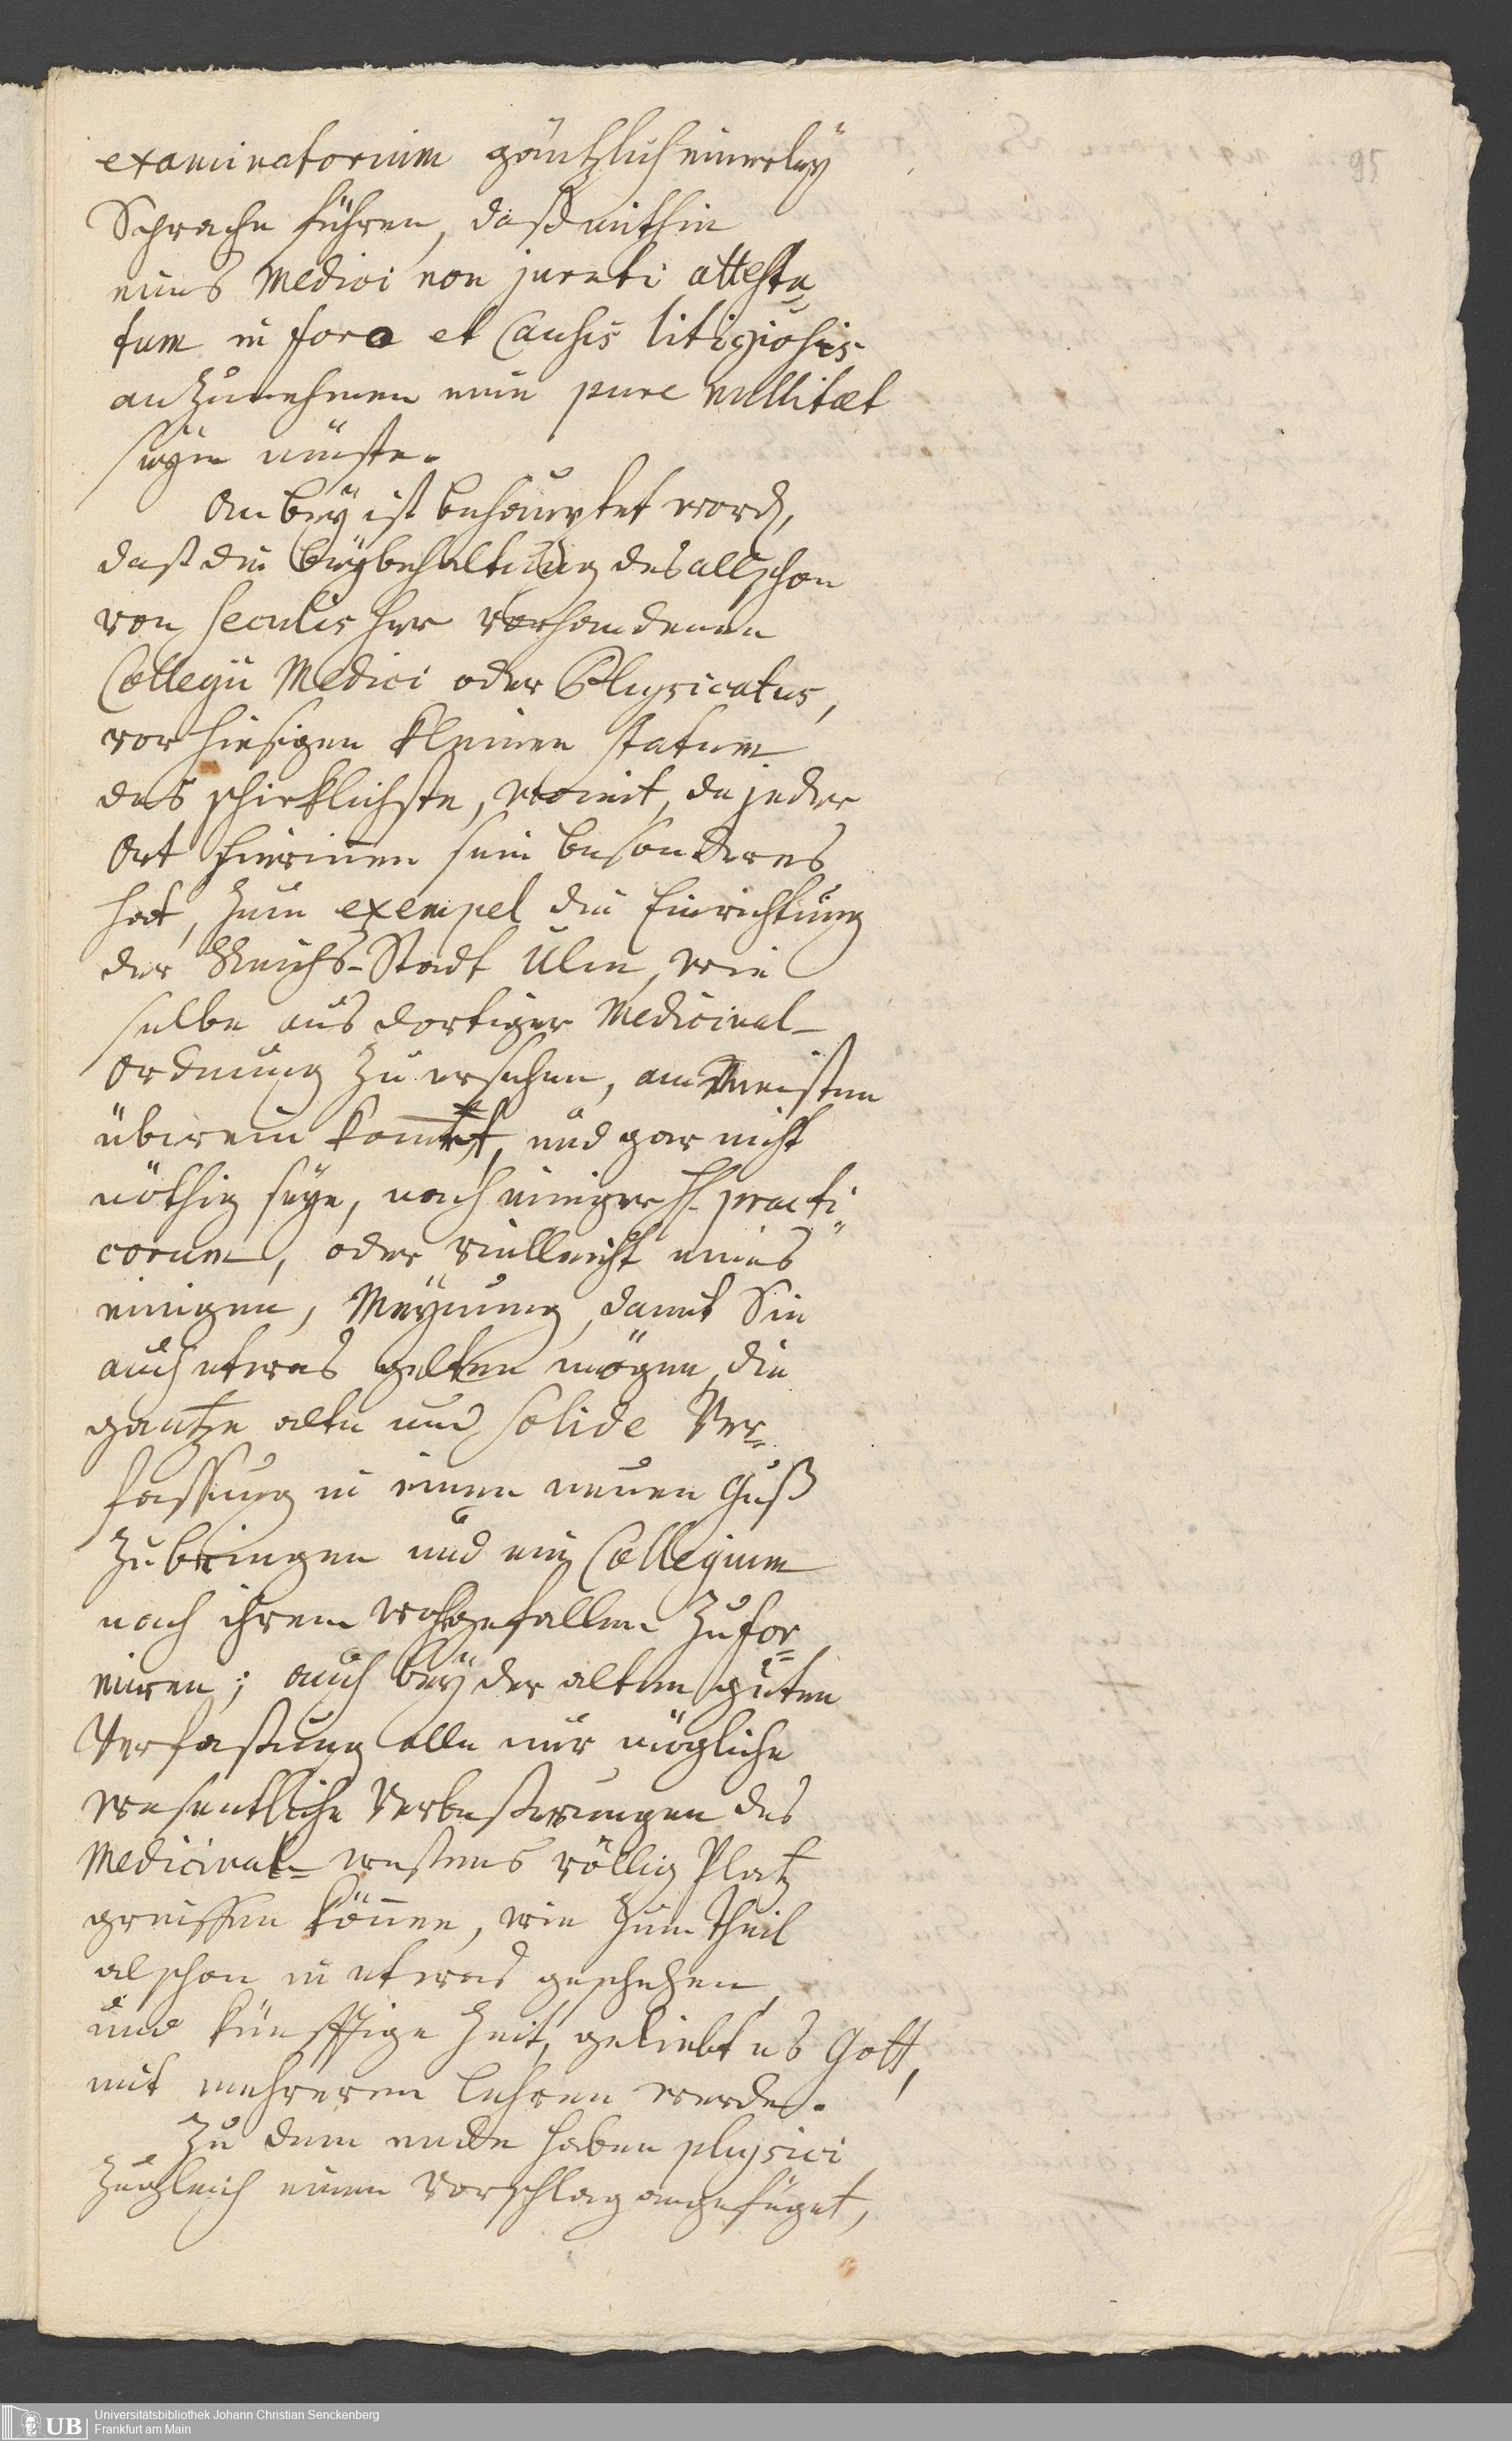 95
examinatorium gäntzlich einerleÿ
Sprache führen, daß mithin
eines Medici non jurati attesta„
tum in foro et Causis litigiosis
anzunehmen eine pure nullitæt
seÿn müste.
Anbeÿ ist behauptet word,
daß die beÿbehaltung des allschon
von seculis her vorhandenen
Collegii Medici oder Physicatus,
vor hiesigen kleinen statum
das schicklichste, womit, da jeder
Ort hierinnen sein besonderes
hat, zum exempel die Einrichtung
der Reichs-Stadt Ulm, wie
selbe aus dortiger Medicinal-
Ordnung zu ersehen, am Meisten
überein kommt, und gar nicht
nöthig seÿe, nach einiger H. practi„
corum, oder vielleicht eines
einigen, Meÿnung, damit Sie
auch etwas gelten mögen, die
gantze alte und solide Ver=
fassung in einen neuen Guß
zu bringen und ein Collegium
nach ihrem wohlgefallen zu for=
miren; auch beÿ der alten guten
Verfaßung alle nur mögliche
wesentliche Verbeßerungen des
Medicinal-weßens völlig Platz
greiffen können, wie zum Theil
alschon in etwas geschehen
und künfftige Zeit, geliebt es Gott,
mit mehrerem lehren werde.
Zu dem ende haben physici
zugleich einen Vorschlag angefüget,
UB
Universitätsbibliothek Johann Christian Senckenberg
Frankfurt am Main